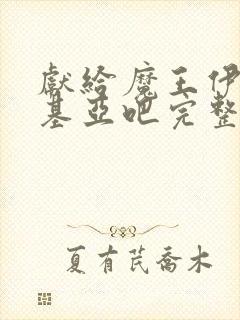 獻給魔王伊
基亞吧完整
夏有芪喬木